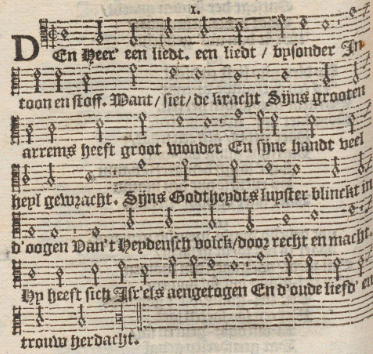 1.
DEn Heer' een liedt, een liedt / bysonder In
toon en stoff. Want / siet / de kracht Sijns grooten
arrems heeft groot wonder En sijne handt veel
heyl gewracht. Sijns Godtheydts luyster blinckt in
d'oogen Van't Heydensch volck / door recht en macht.
Hy heeft sich Isr'els aengetogen En d'oude liefd' en
trouw herdacht.